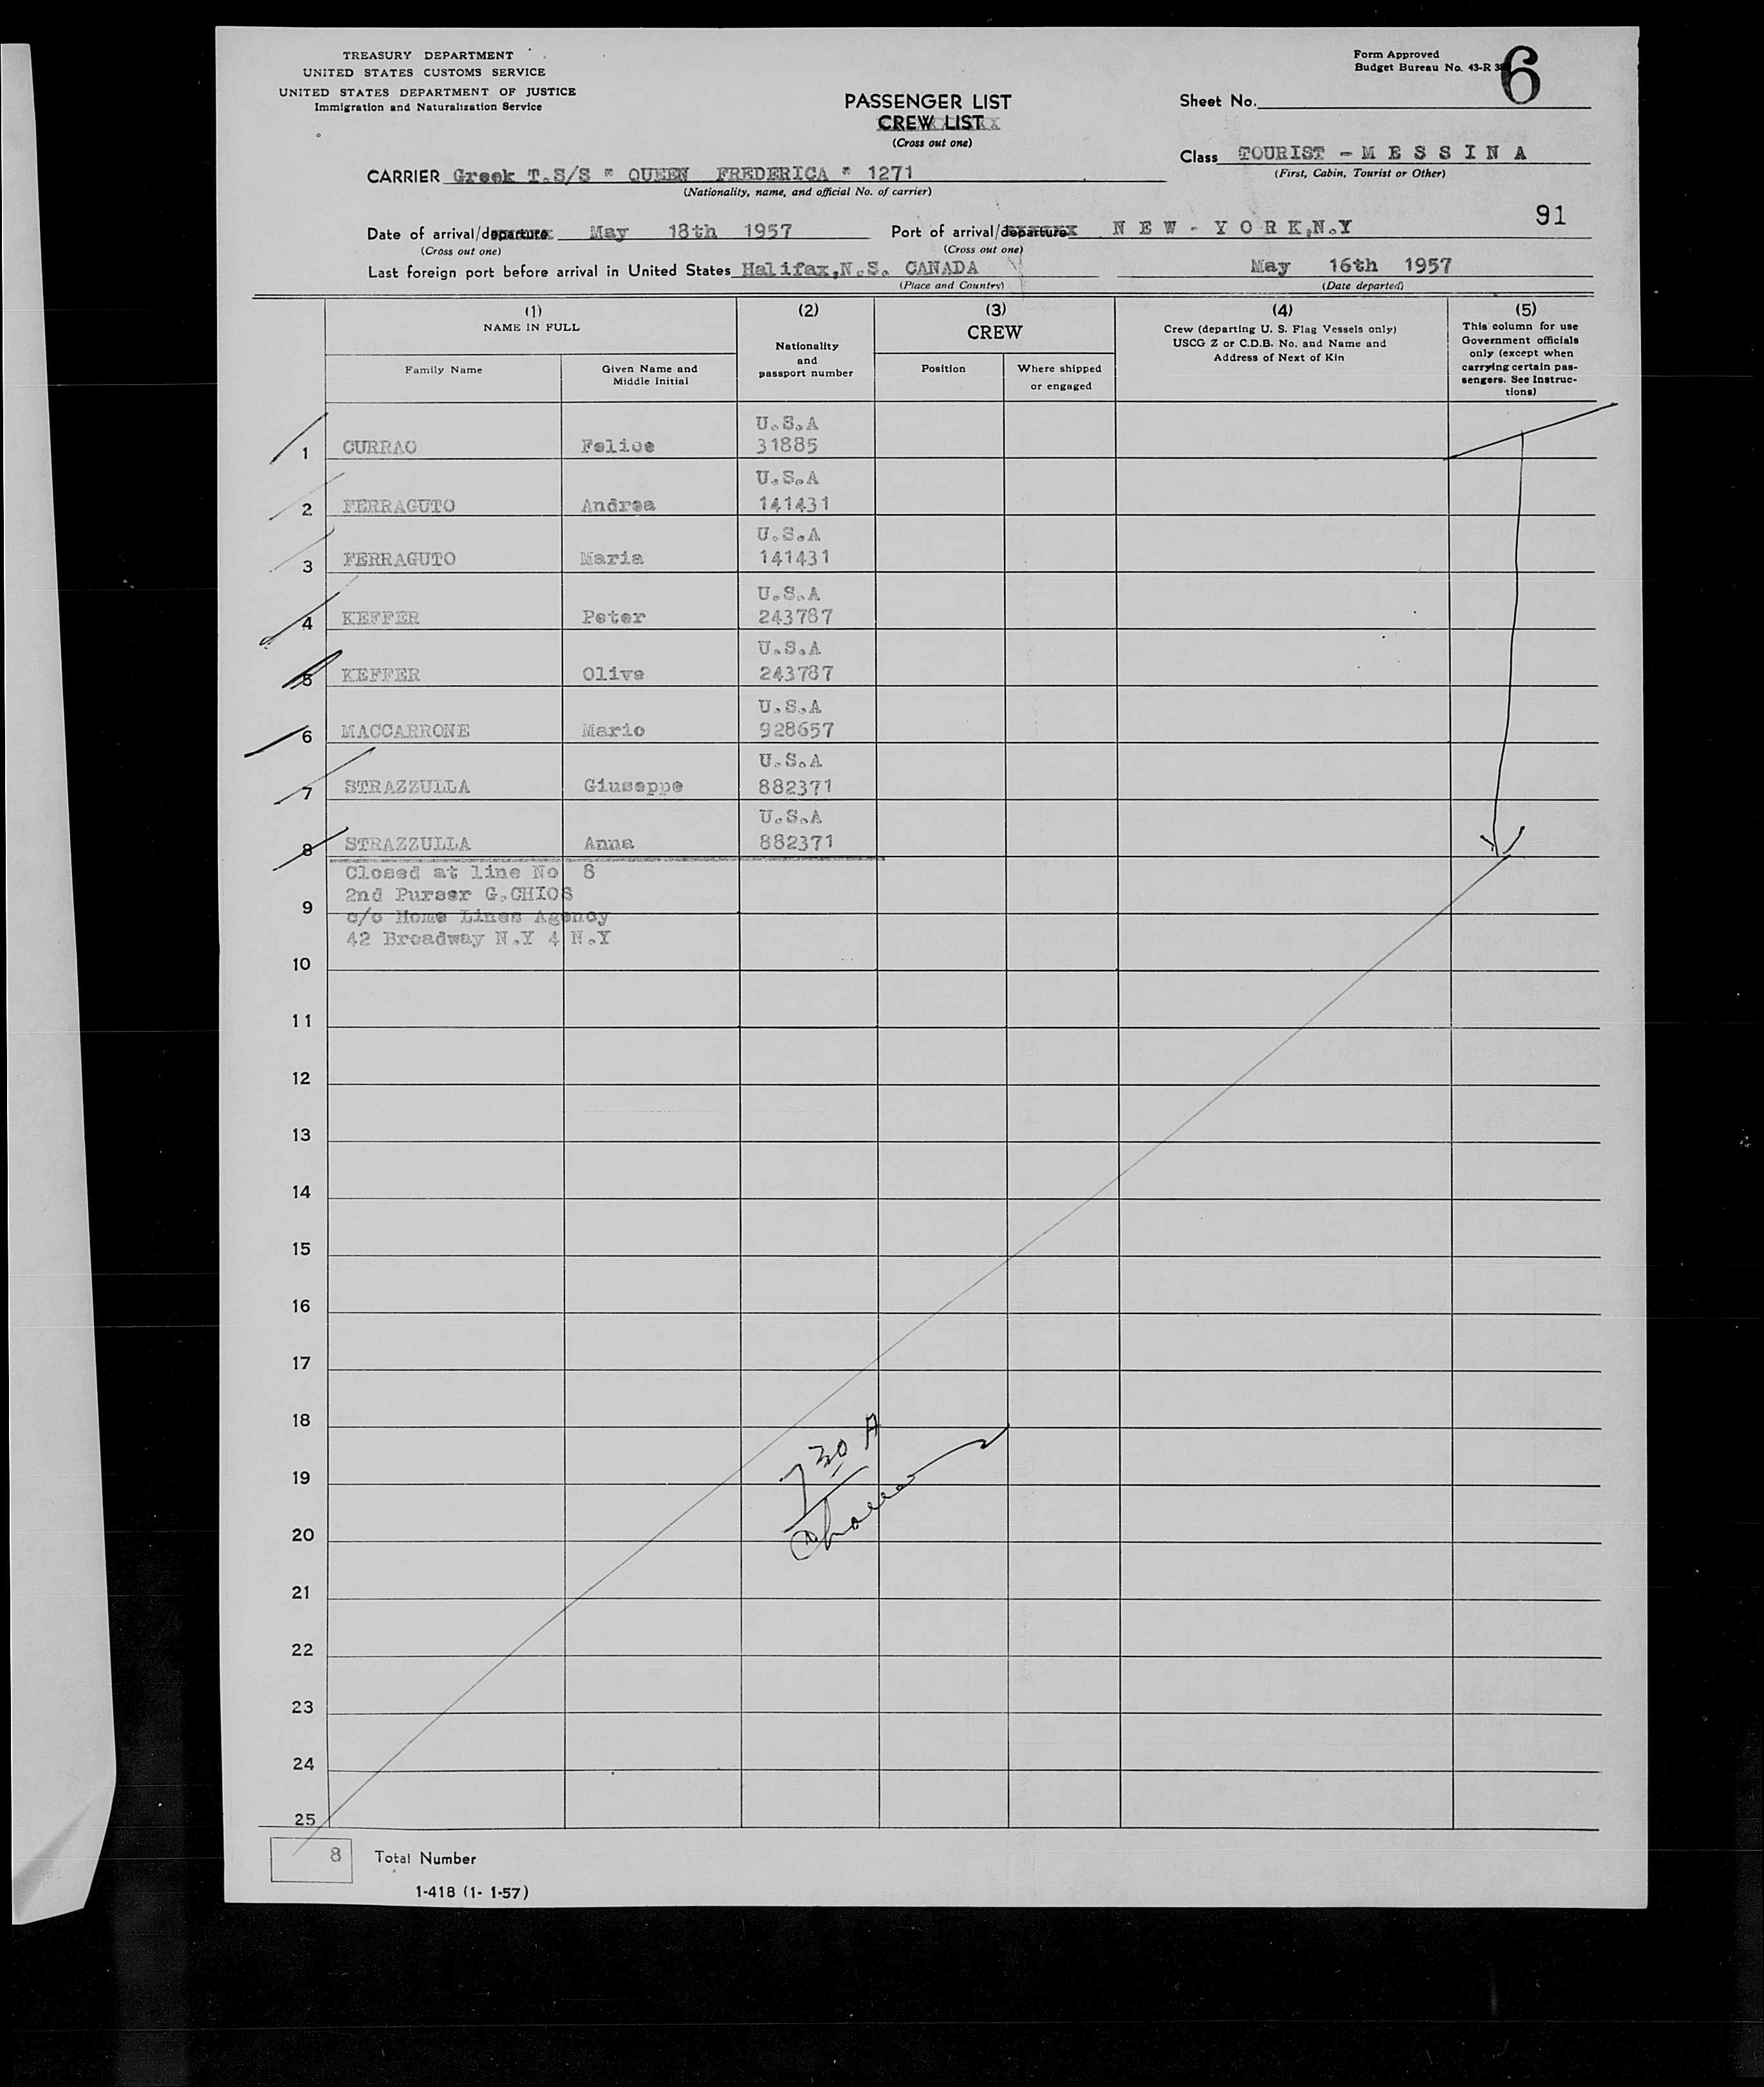 TREASURY DEPARTMENT
UNITED STATES CUSTOMS SERVICE
UNITED STATES DEPARTMENT OF JUSTICE
Immigration and Naturalization Service
Form Approved
Budget Bureau No. 43-R
6
PASSENGER LIST
CREW LIST
(Cross out one)
Sheet No.
Class TOURIST - M E S S I N A
(First, Cabin, Tourist or Other)
CARRIER Greek T.S/S " QUEEN FREDERICA " 1271
(Nationality, name, and official No. of carrier)
91
Date of arrival/departure May 18th 1957 Port of arrival/departure N E W - Y O R K,N.Y
(Cross out one) (Cross out one)
Last foreign port before arrival in United States Halifax,N.S. CANADA May 16th 1957
(Place and Country) (Date departed)
(1) NAME IN FULL
Family Name
Given Name and Middle Initial
(2)
Nationality and passport number
(3)
CREW
Position
Where shipped or engaged
(4)
Crew (departing U. S. Flag Vessels only)
USCG Z or C.D.B. No. and Name and
Address of Next of Kin
(5)
This column for use
Government officials
only (except when
carrying certain pas-
sengers. See Instruc-
tions)
1 CURRAO Felice U.S.A 31885
2 FERRAGUTO Andrea U.S.A 141431
3 FERRAGUTO Maria U.S.A 141431
4 KEFFER Peter U.S.A 243787
5 KEFFER Olive U.S.A 243787
6 MACCARRONE Mario U.S.A 928657
7 STRAZZULLA Giuseppe U.S.A 882371
8 STRAZZULLA Anna U.S.A 882371
Closed at line No 8
2nd Purser G.CHIOS
9
c/o Home Lines Agency
42 Broadway N.Y 4 N.Y
10
11
12
13
14
15
16
17
18
19
20
21
22
23
24
25
7 30 A
8 Total Number
1-418 (1- 1-57)